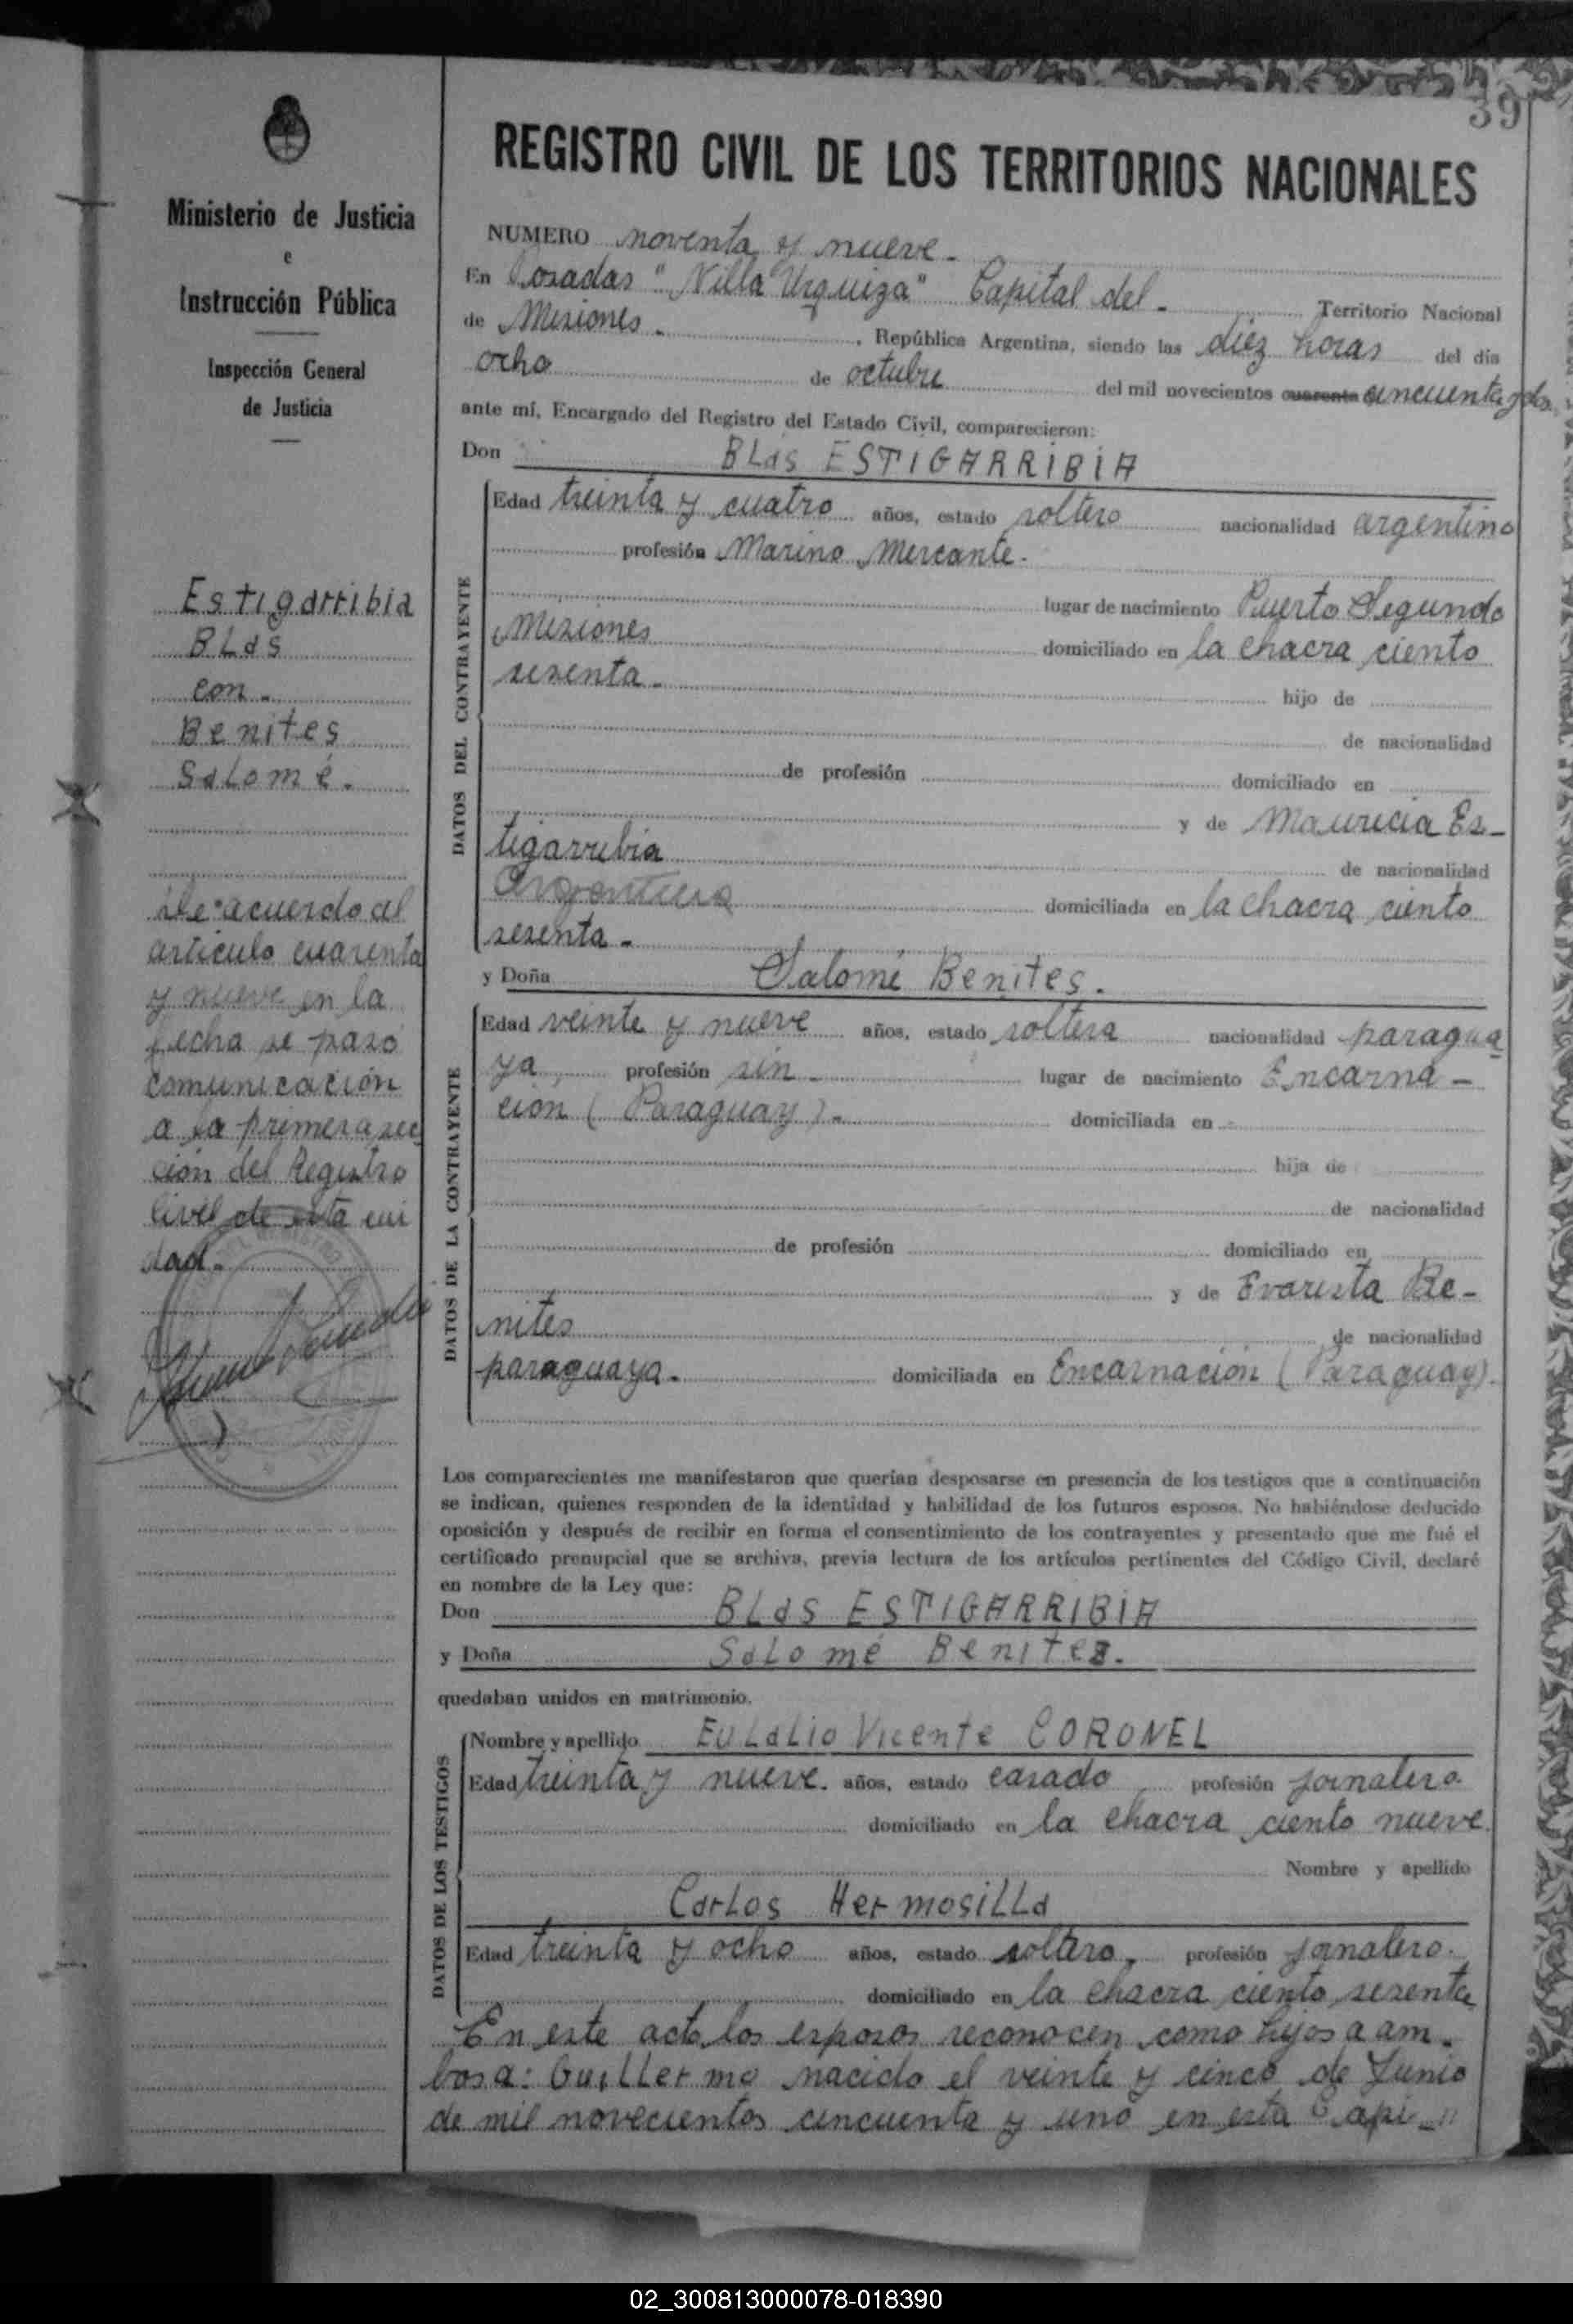 39
REGISTRO CIVIL DE LOS TERRITORIOS NACIONALES
Ministerio de Justicia
e
Instrucción Pública
Inspección General
de Justicia
NUMERO noventa y nueve.
En Posadas "Villa Urquiza" Capital del Territorio Nacional
de Misiones. República Argentina, siendo las diez horas del día
ocho de octubre del mil novecientos cuarenta cincuenta y dos
ante mí, Encargado del Registro del Estado Civil, comparecieron:
Don BLas ESTIGARRIBIA
DATOS DEL CONTRAYENTE
Edad treinta y cuatro años, estado soltero nacionalidad argentino
profesión Marino Mercante.
lugar de nacimiento Puerto Segundo
Misiones domiciliado en la chacra ciento
sesenta. hijo de
de nacionalidad
de profesión domiciliado en
y de Mauricia Es-
tigarribia de nacionalidad
Argentina domiciliada en la chacra ciento
sesenta.
y Doña Salomé Benites.
DATOS DE LA CONTRAYENTE
Edad veinte y nueve años, estado soltera nacionalidad paragua
ya, profesión sin. lugar de nacimiento Encarna-
ción (Paraguay). domiciliada en
hija de
de nacionalidad
de profesión domiciliado en
y de Evarista Be-
nites de nacionalidad
paraguaya. domiciliada en Encarnación (Paraguay).
Los comparecientes me manifestaron que querían desposarse en presencia de los testigos que a continuación
se indican, quienes responden de la identidad y habilidad de los futuros esposos. No habiéndose deducido
oposición y después de recibir en forma el consentimiento de los contrayentes y presentado que me fué el
certificado prenupcial que se archiva, previa lectura de los artículos pertinentes del Código Civil, declaré
en nombre de la Ley que:
Don BLas ESTIGARRIBIA
y Doña SaLomé Benites.
quedaban unidos en matrimonio.
DATOS DE LOS TESTIGOS
Nombre y apellido EuLaLio Vicente CORONEL
Edad treinta y nueve. años, estado casado profesión jornalero.
domiciliado en la chacra ciento nueve.
Nombre y apellido
CarLos HermosiLLa
Edad treinta y ocho años, estado soltero, profesión jornalero.
domiciliado en la chacra ciento sesenta
En este acto los esposos reconocen como hijos a am-
bos a: GuiLLermo nacido el veinte y cinco de Junio
de mil novecientos cincuenta y uno en esta Capi-"
Estigarribia
BLas
con.
Benites
SaLomé.
De acuerdo al
artículo cuarenta
y nueve en la
fecha se pasó
comunicación
a la primera sec
ción del Registro
Civil de esta ciu
dad.
02_300813000078-018390